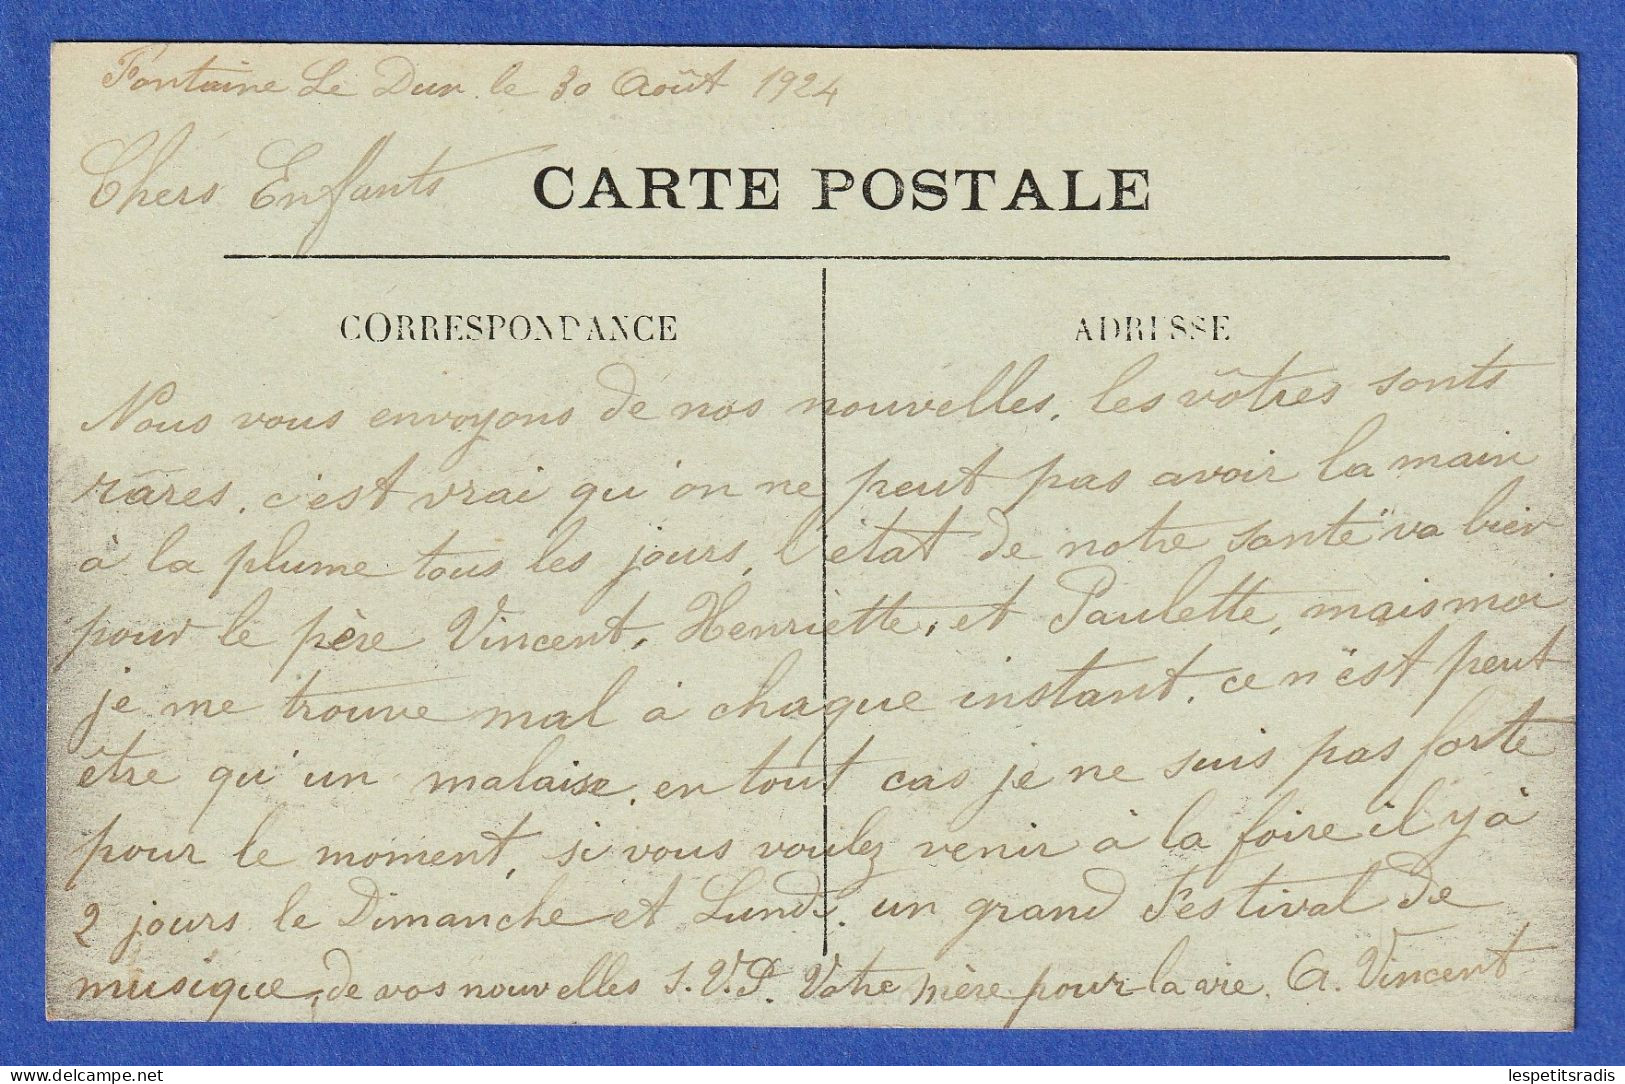 Fontaine Le Dun le 30 Août 1924
Chers Enfants
CARTE POSTALE
CORRESPONDANCE
ADRESSE
Nous vous envoyons de nos nouvelles, les vôtres sonts
rares, c'est vrai qu'on ne peut pas avoir la main
à la plume tous les jours, l'état de notre santé va bien
pour le père Vincent, Henriette, et Paulette, mais moi
je me trouve mal à chaque instant, ce n'est peut
être qu'un malaise, en tout cas je ne suis pas forte
pour le moment, si vous voulez venir à la foire il y à
2 jours le Dimanche et Lundi, un grand Festival de
musique, de vos nouvelles S.V.P. Votre mère pour la vie, A. Vincent
lespetitsradis